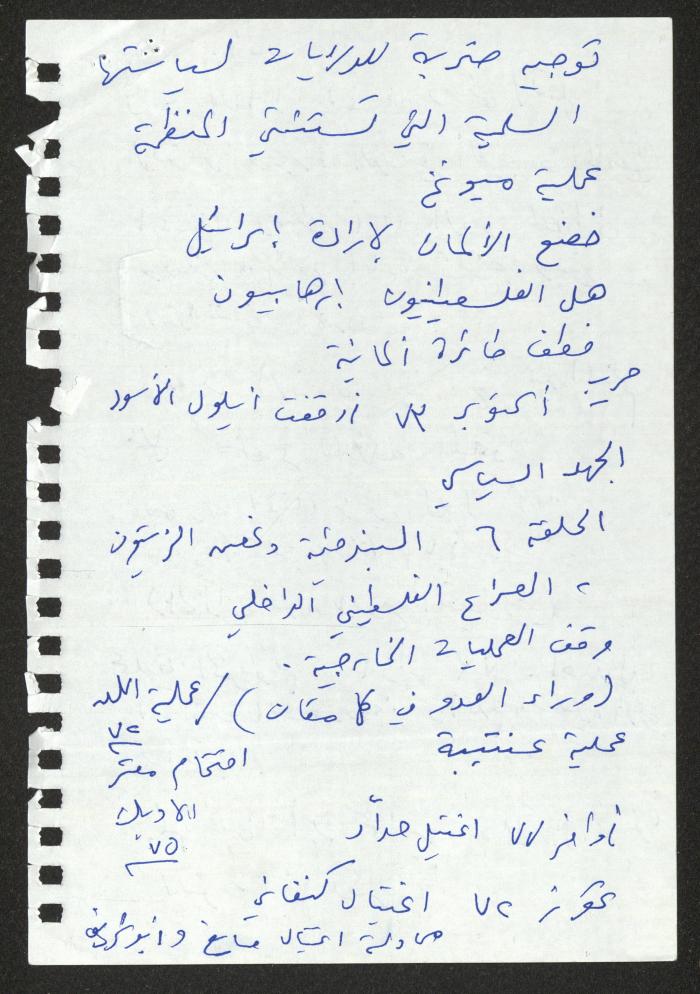 توجيه ضربة للولايات لسياستها
السلمية التي تستثني المنظمة
عملية ميونخ
خضع الألمان لإرادة إسرائيل
هل الفلسطينيون إرهابيون
خطف طائرة ألمانية
حرب أكتوبر ٧٣ أوقفت أيلول الأسود
الجهد السياسي
الحلقة ٦ البندقية وغصن الزيتون
، الصراع الفلسطيني الداخلي
وقف العمليات الخارجية .
(وراء العدو في كل مكان) / عملية اللد
٧٢
عملية عنتيبة
اقتحام مقر
الاوبك
٧٥
أواخر ٧٧ اغتيل حداد
تموز ٧٢ اغتيال كنفاني
محاولة اغتيال صايغ وأبو شريف